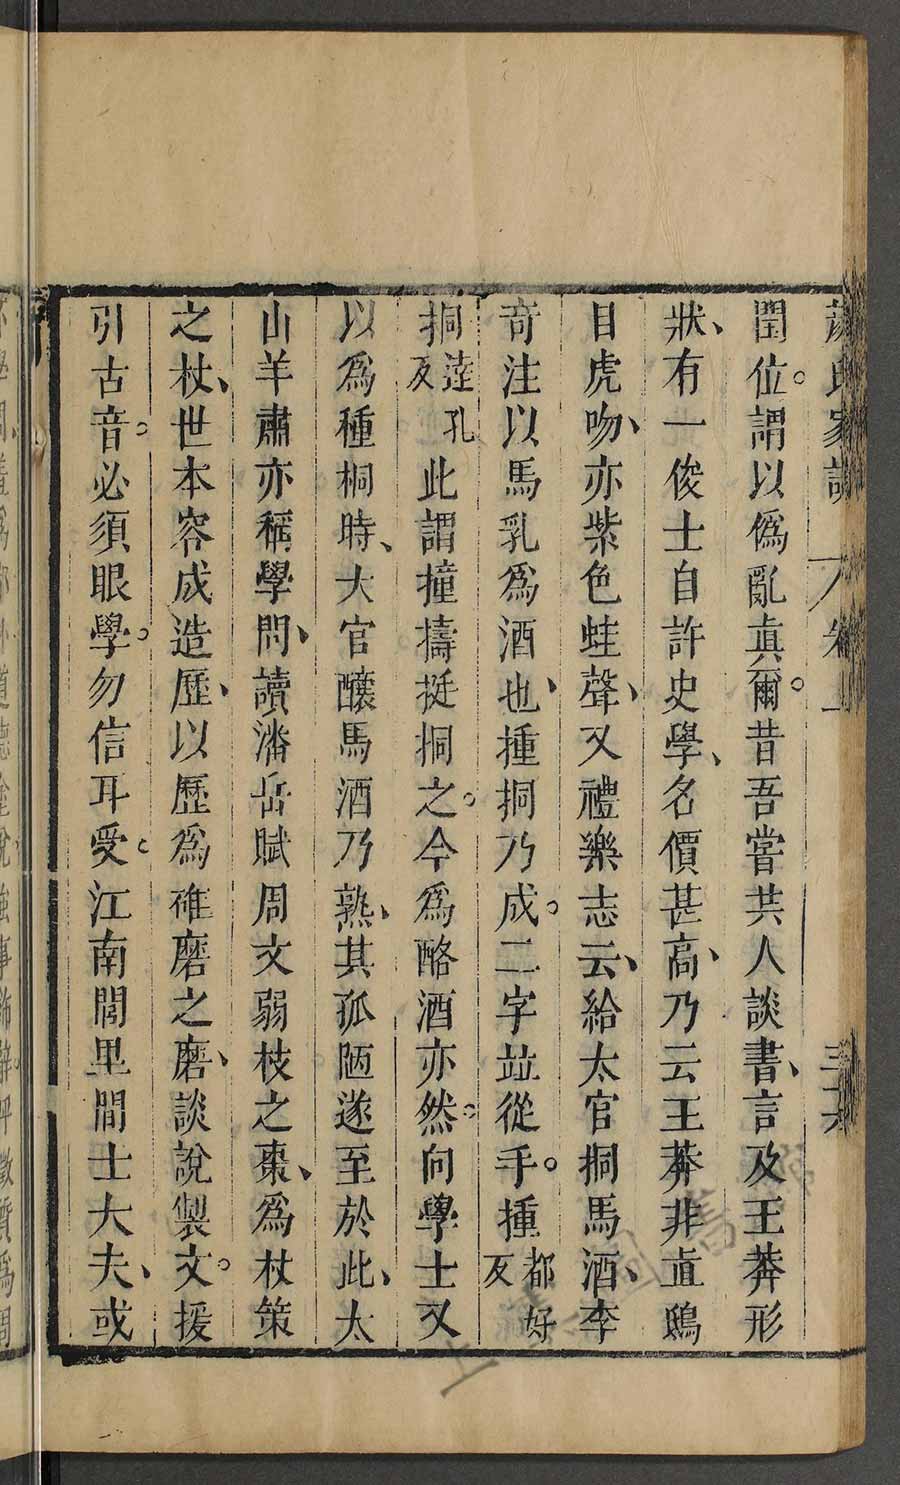 顏氏家訓 卷上 三六
閏位。謂以僞亂眞爾。昔吾嘗共人談書、言及王莽形
狀、有一俊士自許史學、名價甚高、乃云王莽非直鴟
目虎吻、亦紫色蛙聲、又禮樂志云、給太官挏馬酒、李
奇注以馬乳爲酒也、揰挏乃成。二字竝從手。揰都好反
挏逹孔反此謂撞擣挺挏之。今爲酪酒亦然。向學士又
以爲種桐時、大官釀馬酒乃熟、其孤陋遂至於此、太
山羊肅亦稱學問、讀潘岳賦周文弱枝之棗、爲杖策
之杖、世本容成造歷、以歷爲碓磨之磨、談說製文。援
引古音。必須眼學。勿信耳受。江南閭里間士大夫、或